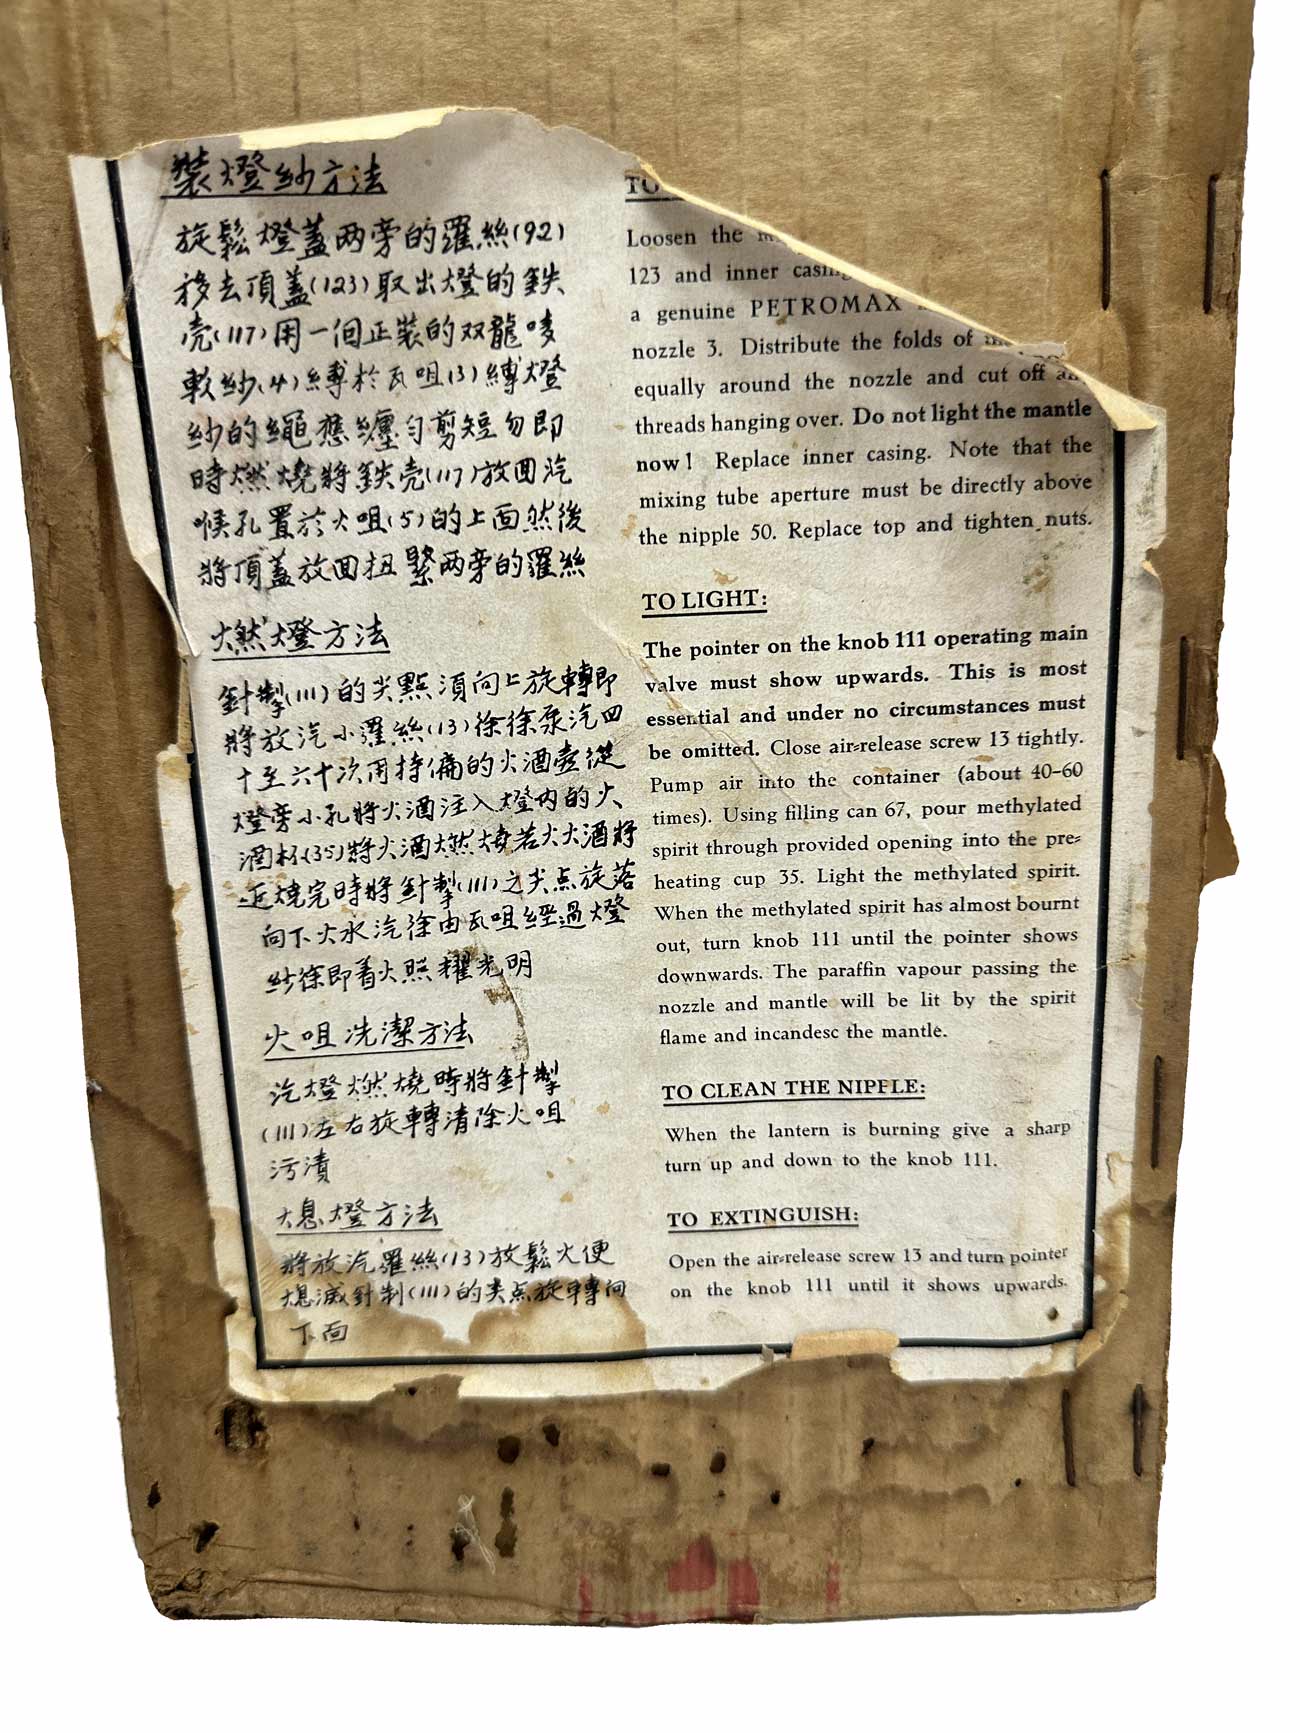 裝燈紗方法
旋鬆燈蓋两旁的羅絲(92)
移去頂蓋(123)取出燈的鉄
壳(117)用一個正裝的双龍唛
軟紗(4)縛於瓦咀(3)縛燈
紗的繩應纏匀剪短勿即
時燃燒將鉄壳(117)放回汽
喉孔置於火咀(5)的上面然後
將頂蓋放回扭緊两旁的羅絲
燃燈方法
針掣(111)的尖點須向上旋轉即
將放汽小羅絲(13)徐徐泵汽四
十至六十次用特備的火酒壺從
燈旁小孔將火酒注入燈内的火
酒杯(35)將火酒燃燒若火酒將
近燒完時將針掣(111)之尖点旋落
向下火水汽徐由瓦咀經過燈
紗徐即着火照耀光明
火咀洗潔方法
汽燈燃燒時將針掣
(111)左右旋轉清除火咀
污漬
熄燈方法
將放汽羅絲(13)放鬆火便
熄滅針制(111)的尖点旋轉向
下面
TO
Loosen the
123 and inner casing
a genuine PETROMAX
nozzle 3. Distribute the folds of
equally around the nozzle and cut off any
threads hanging over. Do not light the mantle
now! Replace inner casing. Note that the
mixing tube aperture must be directly above
the nipple 50. Replace top and tighten nuts.
TO LIGHT:
The pointer on the knob 111 operating main
valve must show upwards. This is most
essential and under no circumstances must
be omitted. Close air-release screw 13 tightly.
Pump air into the container (about 40-60
times). Using filling can 67, pour methylated
spirit through provided opening into the pre-
heating cup 35. Light the methylated spirit.
When the methylated spirit has almost bournt
out, turn knob 111 until the pointer shows
downwards. The paraffin vapour passing the
nozzle and mantle will be lit by the spirit
flame and incandesc the mantle.
TO CLEAN THE NIPFLE:
When the lantern is burning give a sharp
turn up and down to the knob 111.
TO EXTINGUISH:
Open the air-release screw 13 and turn pointer
on the knob 111 until it shows upwards.